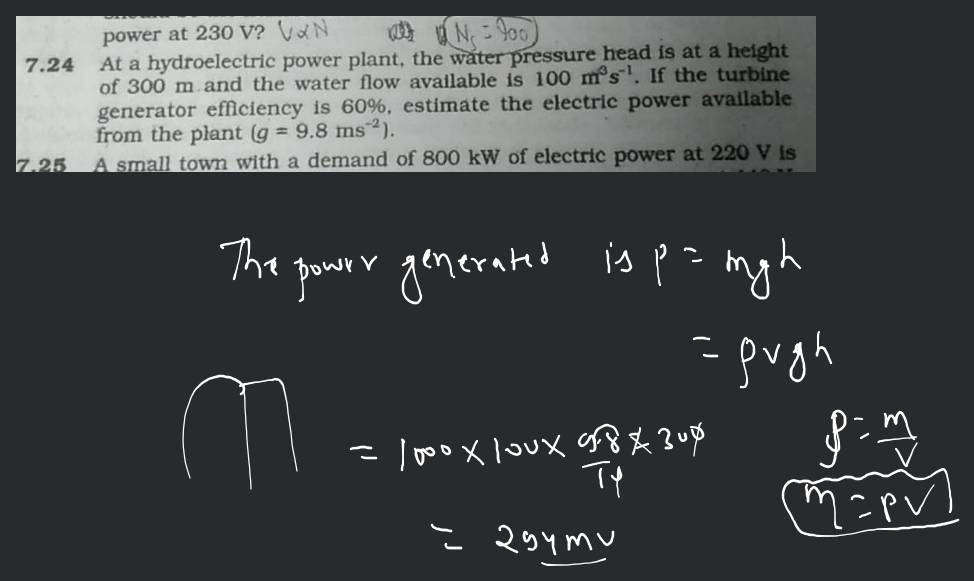 power at 230 V? V∝N N_s = 900
7.24 At a hydroelectric power plant, the water pressure head is at a height
of 300 m and the water flow available is 100 m³s⁻¹. If the turbine
generator efficiency is 60%, estimate the electric power available
from the plant (g = 9.8 ms⁻²).
7.25 A small town with a demand of 800 kW of electric power at 220 V is
The power generated is p = mgh
= ρvgh
= 1000 × 100 × 98 × 300
ρ = m/V
m = ρV
= 294 mv